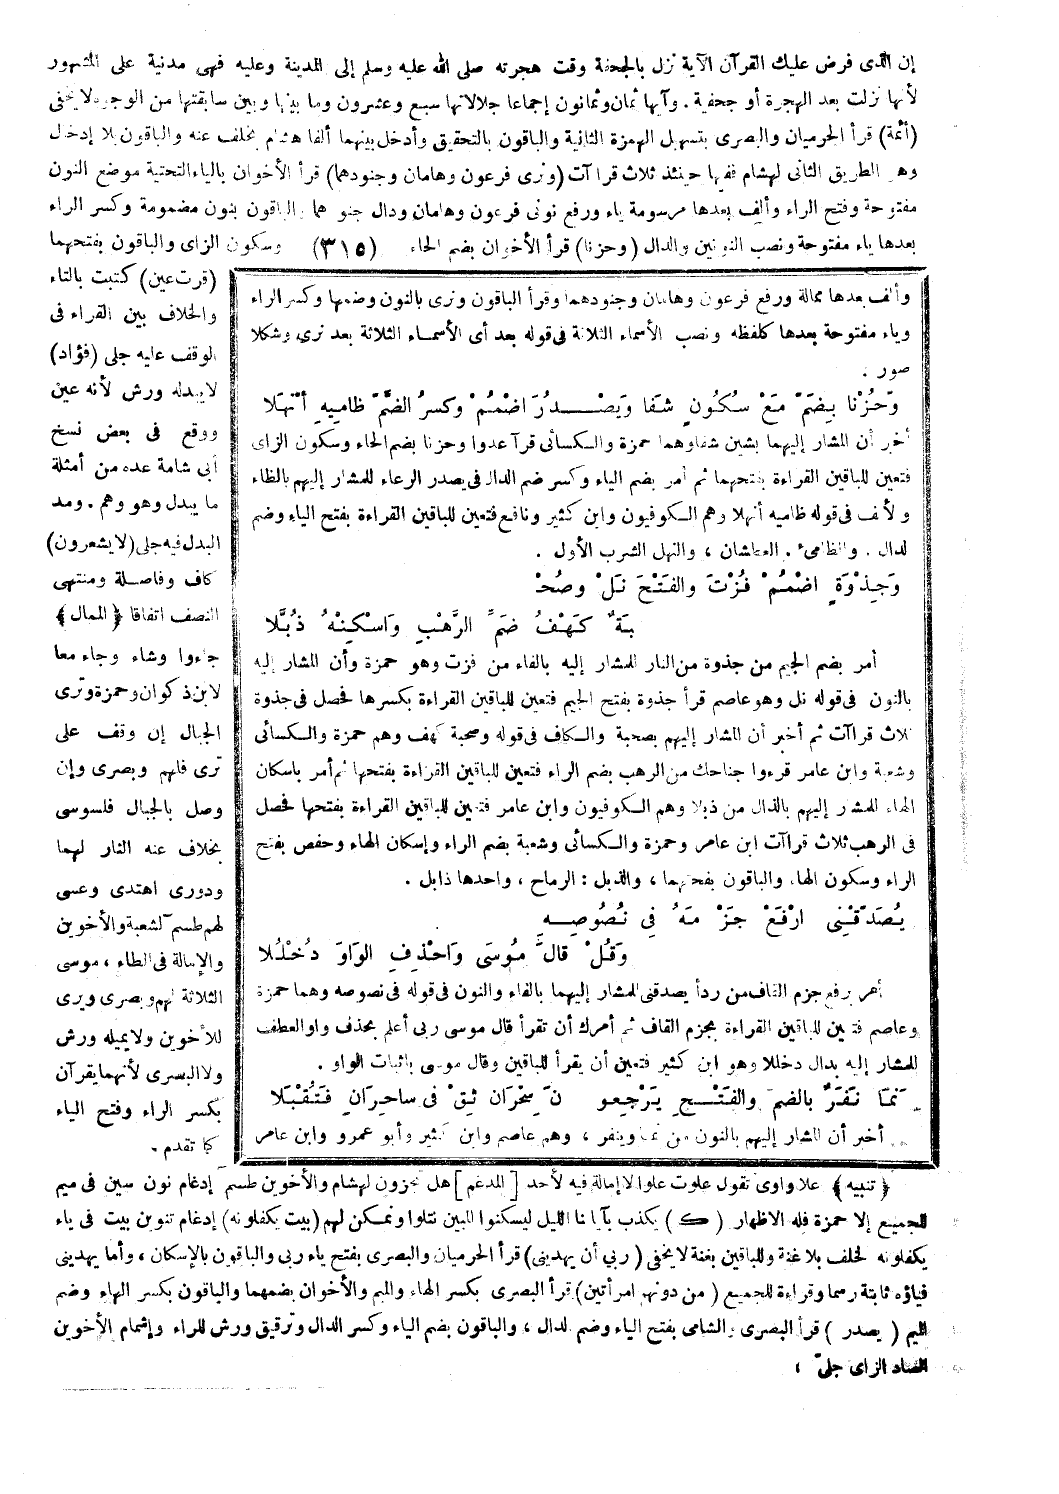 إن الذى فرض عليك القرآن الآية نزل بالجحفة وقت هجرته صلى الله عليه وسلم إلى المدينة وعليه فهى مدنية على المشهور
لأنها نزلت بعد الهجرة أو جحفية . وآيها ثمان وثمانون إجماعا جلالاتها سبع وعشرون وما بينها وبين سابقتها من الوجوه لا يخفى
(أئمة) قرأ الحرميان والبصرى بتسهيل الهمزة الثانية والباقون بالتحقيق وأدخل بينهما ألفا هشام بخلف عنه والباقون بلا إدخال
وهو الطريق الثانى لهشام ففيها حينئذ ثلاث قرا آت (ونرى فرعون وهامان وجنودهما) قرأ الأخوان بالياء التحتية موضع النون
مفتوحة وفتح الراء وألف بعدها مرسومة ياء ورفع نونى فرعون وهامان ودال جنودهما والباقون بنون مضمومة وكسر الراء
بعدها ياء مفتوحة ونصب النونين والدال (وحزنا) قرأ الأخوان بضم الحاء (٣١٥) وسكون الزاى والباقون بفتحهما
(قرت عين) كتبت بالتاء
والخلاف بين القراء فى
الوقف عليه جلى (فؤاد)
لا يبدله ورش لأنه عين
ووقع فى بعض نسخ
أبى شامة عده من أمثلة
ما يبدل وهو وهم . ومد
البدل فيه جلى (لا يشعرون)
كاف وفاصلة ومنتهى
النصف اتفاقا ﴿الممال﴾
جاءوا وشاء وجاء معا
لابن ذكوان وحمزة وترى
الجبال إن وقف على
ترى فلهم وبصرى وإن
وصل بالجبال فلسوسى
بخلاف عنه النار لهما
ودورى اهتدى وعسى
لهم طسم لشعبة والأخوين
والإمالة فى الطاء ، موسى
الثلاثة لهم وبصرى ويرى
للأخوين ولا يميله ورش
ولا البصرى لأنهما يقرآن
بكسر الراء وفتح الياء
كما تقدم .
وألف بعدها ممالة ورفع فرعون وهامان وجنودهما وقرأ الباقون ونرى بالنون وضمها وكسر الراء
وياء مفتوحة بعدها كلفظه ونصب الأسماء الثلاثة فى قوله بعد أى الأسماء الثلاثة بعد نرى وشكلا
صور .
وَحُزْنا بِضَمّ مَعْ سُكُونٍ شَفَا وَيَصْـدُرَ اضْمُمْ وكَسرُ الضَّمّ ظامِيهِ أنْهَلا
أخبر أن المشار إليهما بشين شفا وهما حمزة والكسائى قرآ عدوا وحزنا بضم الحاء وسكون الزاى
فتعين للباقين القراءة بفتحهما ثم أمر بضم الياء وكسر ضم الدال فى يصدر الرعاء للمشار إليهم بالظاء
والألف فى قوله ظاميه أنهلا وهم الكوفيون وابن كثير ونافع فتعين للباقين القراءة بفتح الياء وضم
الدال . والظامىء . العطشان ، والنهل الشرب الأول .
وَجِذْوَةٍ اضْمُمْ فُزْتَ والفَتْحَ نَلْ وصُحْـ
بَةٌ كَهْفُ ضَمَّ الرَّهْبِ وَاسْكِنْهُ ذُبَّلا
أمر بضم الجيم من جذوة من النار للمشار إليه بالفاء من فزت وهو حمزة وأن المشار إليه
بالنون فى قوله نل وهو عاصم قرأ جذوة بفتح الجيم فتعين للباقين القراءة بكسرها فحصل فى جذوة
ثلاث قراآت ثم أخبر أن المشار إليهم بصحبة والكاف فى قوله وصحبة كهف وهم حمزة والكسائى
وشعبة وابن عامر قرءوا جناحك من الرهب بضم الراء فتعين للباقين القراءة بفتحها ثم أمر باسكان
الهاء للمشار إليهم بالذال من ذبلا وهم الكوفيون وابن عامر فتعين للباقين القراءة بفتحها فحصل
فى الرهب ثلاث قراآت ابن عامر وحمزة والكسائى وشعبة بضم الراء وإسكان الهاء وحفص بفتح
الراء وسكون الهاء والباقون بفتحهما ، والذبل : الرماح ، واحدها ذابل .
يُصَدّقْنِى ارْفَعْ جَزْ مَهُ فِى نُصُوصِـهِ
وَقُلْ قالَ مُوسَى وَاحْذِفِ الوَاوَ دُخْلُلا
أمر برفع جزم القاف من ردأ يصدقنى للمشار إليهما بالفاء والنون فى قوله فى نصوصه وهما حمزة
وعاصم فتعين للباقين القراءة بجزم القاف ثم أمرك أن تقرأ قال موسى ربى أعلم بحذف واو العطف
للمشار إليه بدال دخللا وهو ابن كثير فتعين أن يقرأ للباقين وقال موسى باثبات الواو .
نَمَا نَفَرٌ بالضّمّ والفَتْـحِ يَرْجِعُو نَ سِحْرَانِ ثِقْ فى ساحِرَانِ فَتُقْبَلا
أخبر أن المشار إليهم بالنون من نما وبنفر ، وهم عاصم وابن كثير وأبو عمرو وابن عامر
﴿تنبيه﴾ علا واوى تقول علوت علوا لا إمالة فيه لأحد [المدغم] هل تجزون لهشام والأخوين طسم إدغام نون سين فى ميم
للجميع إلا حمزة فله الاظهار (ك) يكذب بآياتنا الليل ليسكنوا المبين نتلوا ونمكن لهم (بيت يكفلونه) إدغام تنوين بيت فى ياء
يكفلونه لخلف بلا غنة وللباقين بغنة لا يخفى (ربي أن يهدينى) قرأ الحرميان والبصرى بفتح ياء ربى والباقون بالإسكان ، وأما يهدينى
فياؤه ثابتة رسما وقراءة للجميع (من دونهم امرأتين) قرأ البصرى بكسر الهاء والميم والأخوان بضمهما والباقون بكسر الهاء وضم
الميم (يصدر) قرأ البصرى والشامى بفتح الياء وضم الدال ، والباقون بضم الياء وكسر الدال وترقيق ورش للراء وإشمام الأخوين
الصاد الزاى جلىّ ،